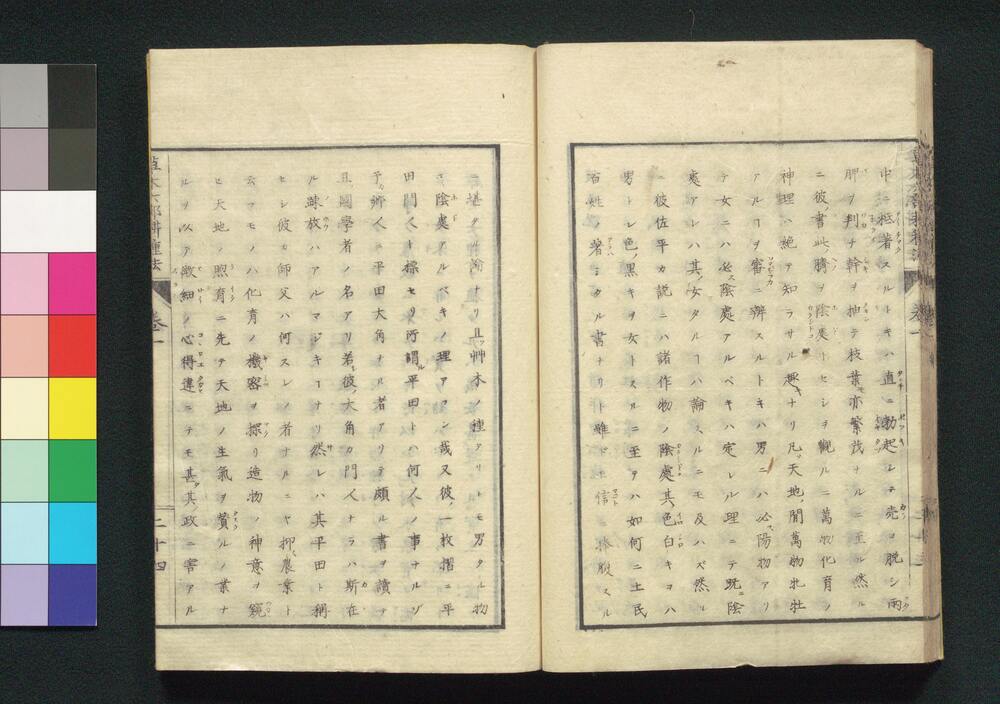 中ニ粘著スルトキハ直ニ勃起シテ売ヲ脱シ両
胛ヲ判チ幹ヲ抽テ枝葉モ亦繁茂ナルニ至ル然ル
ニ彼書此臍ヲ陰処トセシヲ観ルニ萬物化育ノ
神理ハ絶テ知ラサル趣キナリ凡ソ天地ノ間萬物牝牡
アルコヲ審ニ辨スルトキハ男ニハ必ス陽物アリ
テ女ニハ必ス陰處アルベキハ定レル理ニテ既ニ陰
處アレハ其女タルコハ論スルニモ及ハズ然ルニ
ニ彼佐平カ説ニハ諸作物ノ陰處其色白キヲハ
男トシ色ノ黒キヲ女トスルニ至テハ如何ニ土民
百姓ノ著ミタル書ナリト雖ドモ信ニ捧腹スル
ニ堪タリ且ツ艸木ノ種アリトモ男タル物
ニ陰處アルベキノ理アラン哉又彼ノ一枚摺ニ平
田門人ト標セリ所謂ル平田トハ何人ノ事ナルゾ
予カ郷人ニ平田大角ナル者アリテ頗ル書ヲ讀テ
且國學者ノ名アリ若シ彼ノ大角カ門人ナラハ斯在
ル踈放ハアルマジキコナリ然レハ其平田ト稱
セシ彼カ師父ハ何スレノ者ナルニヤ抑モ農業ト
云フモノハ化育ノ機密ヲ探リ造物ノ神意ヲ窺
ヒ天地ノ照育ニ先テ天地ノ生氣ヲ賛ルノ業ナ
ルヲ以テ微細ノ心得違ニテモ甚タ其政ニ害アル
草木六部耕種法
卷一
二十四